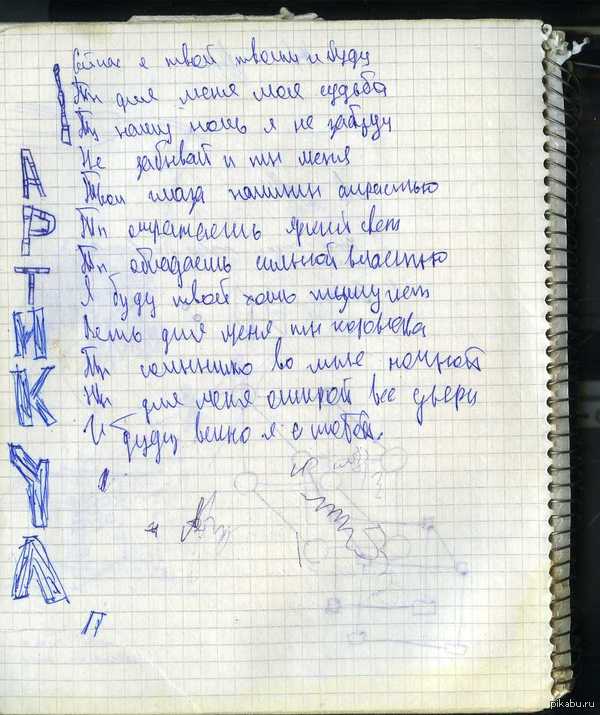 Сейчас я твой твоим и буду
Ты для меня моя судьба
Ту нашу ночь я не забуду
Не забывай и ты меня
Твои глаза полны страстью
Ты отражаешь яркий свет
Ты обладаешь сильной властью
Я буду твой хоть тыщу лет
Ведь для меня ты королева
Ты солнышко во мгле ночной
Ты для меня открой все двери
И буду вечно я с тобой.
АРТИКУЛ
П
pikabu.ru